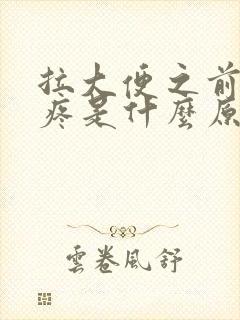 拉大便之前
疼是什麼原
雲卷風舒